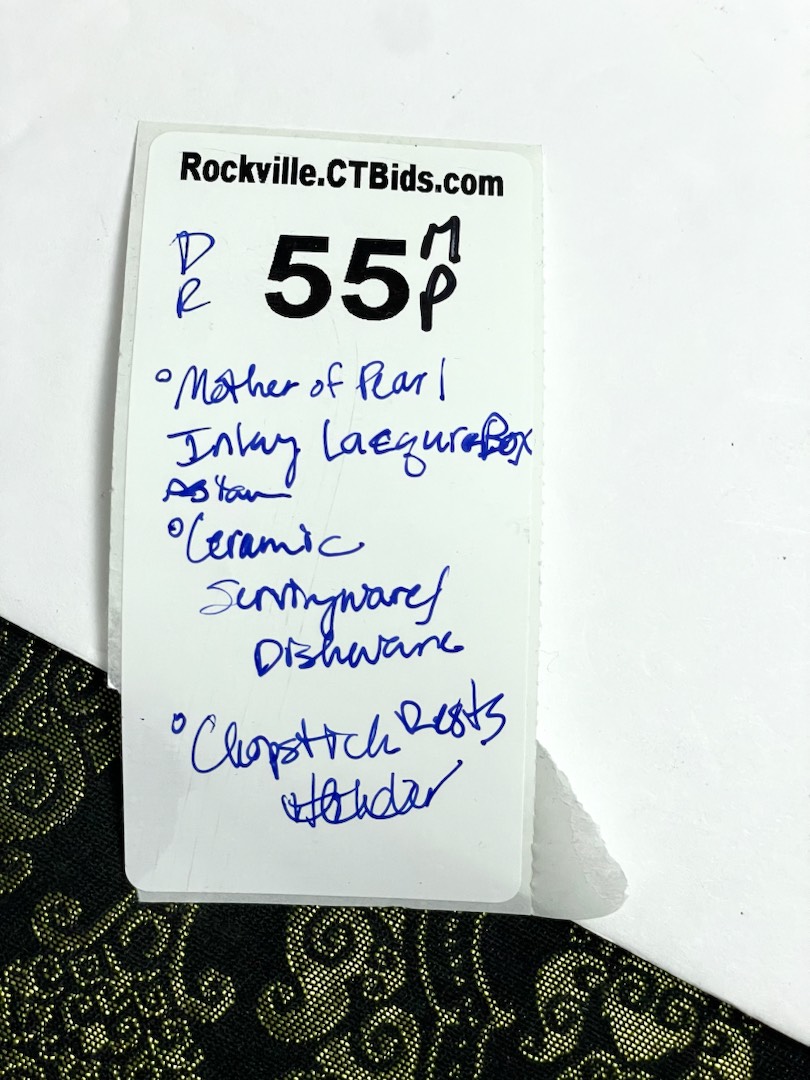 Rockville.CTBids.com
D R 55 M P
Mother of Pearl
Inlay Lacqure Box
Asian
Ceramic
Servingware/
Dishware
Chopstick Rests